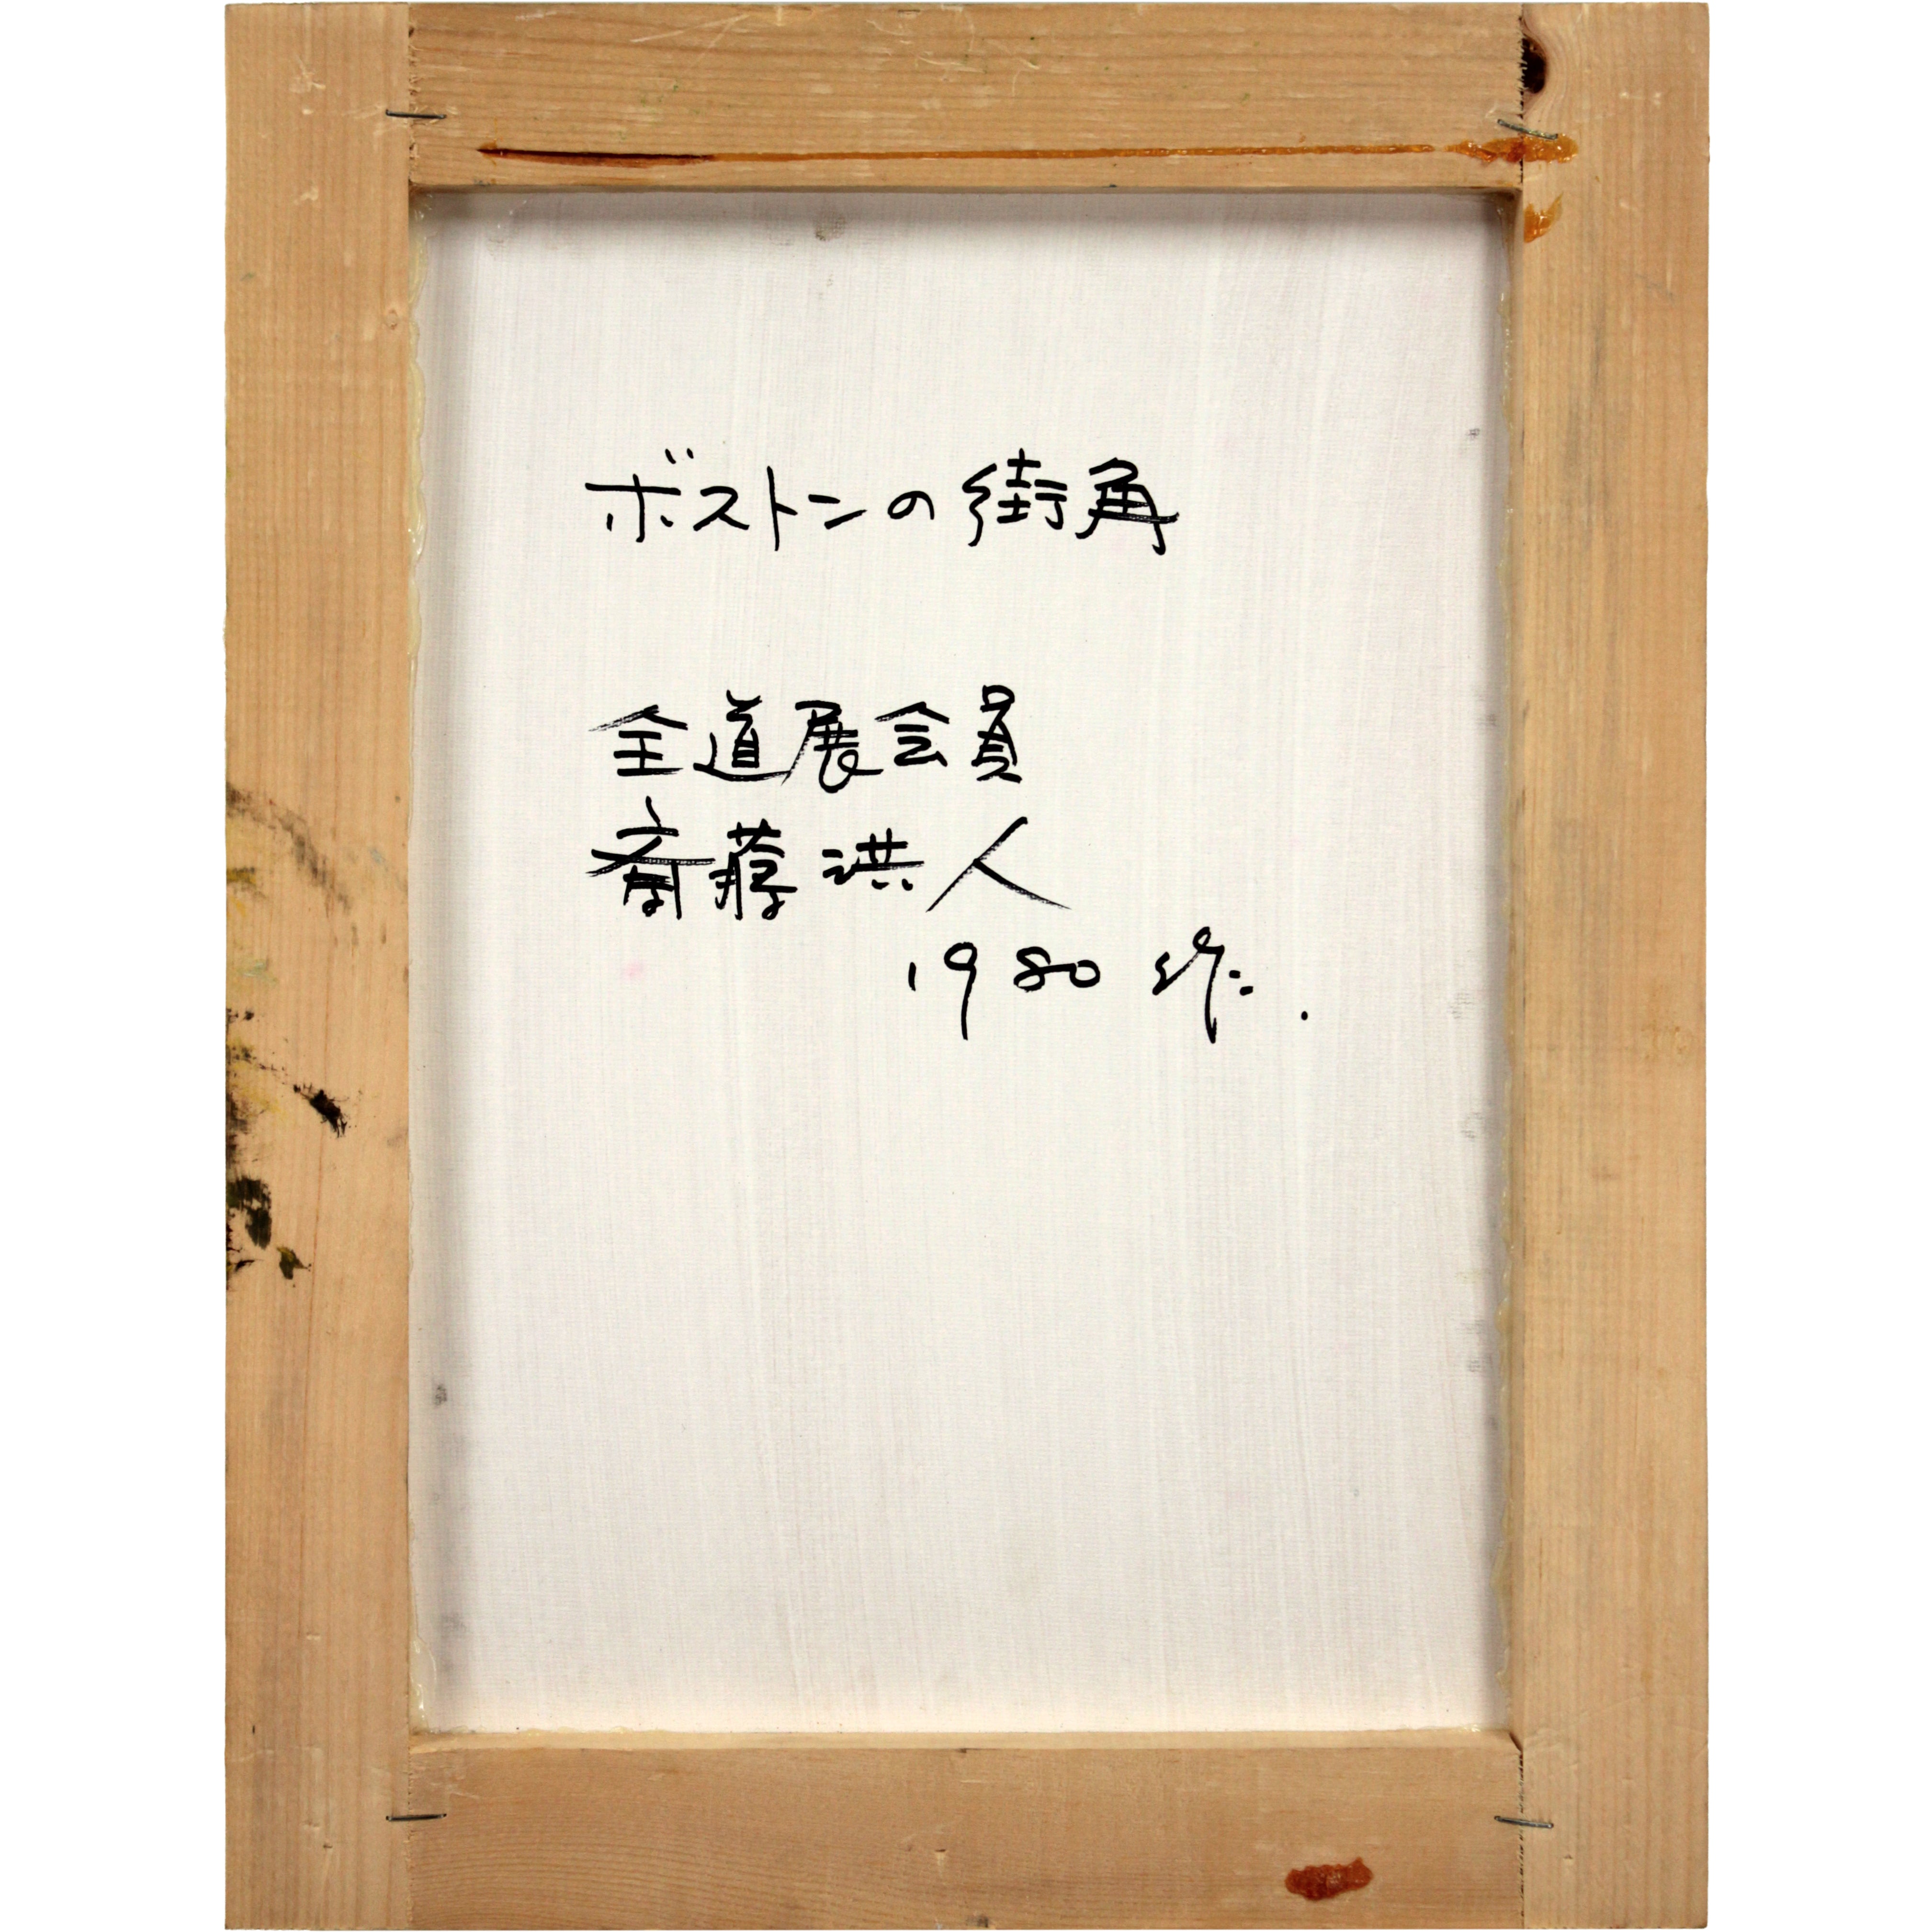 ボストンの街角
全道展会員
斎藤洪人
1980 作.